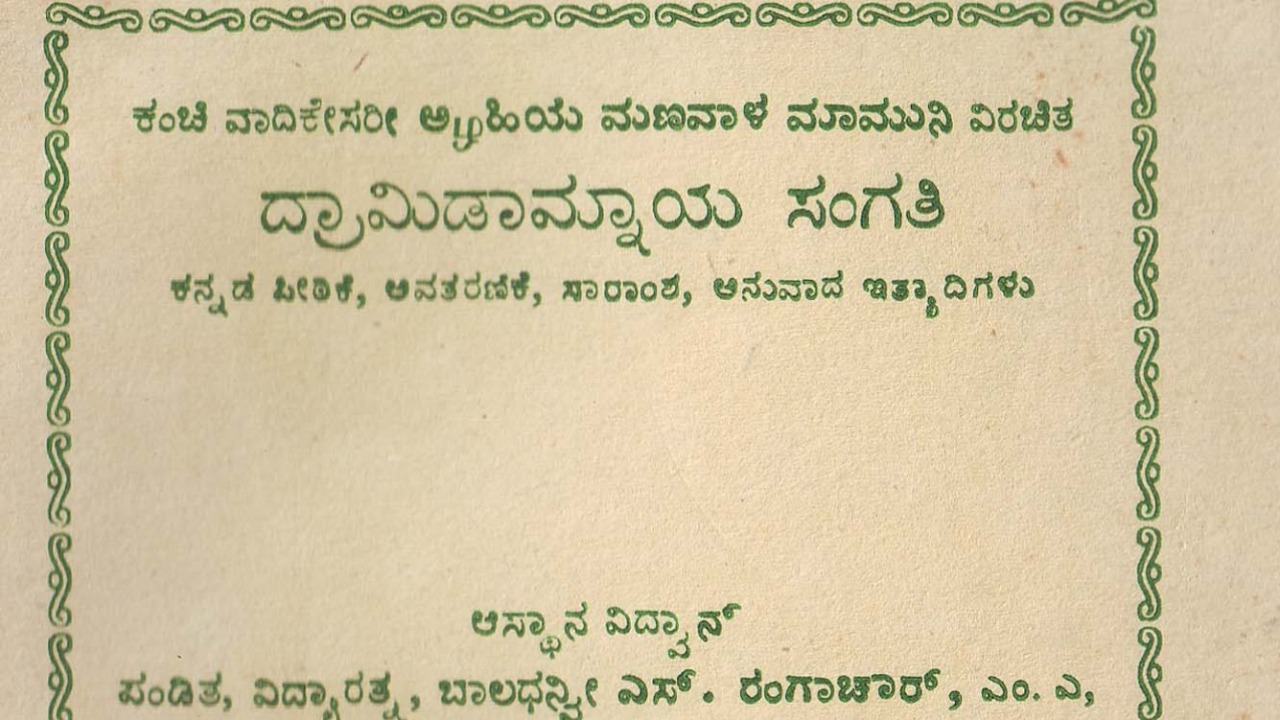 ಕಂಚಿ ವಾದಿಕೇಸರೀ ಅೞಹಿಯ ಮಣವಾಳ ಮಾಮುನಿ ವಿರಚಿತ
ದ್ರಾಮಿಡಾಮ್ನಾಯ ಸಂಗತಿ
ಕನ್ನಡ ಪೀಠಿಕೆ, ಅವತರಣಿಕೆ, ಸಾರಾಂಶ, ಅನುವಾದ ಇತ್ಯಾದಿಗಳು
ಆಸ್ಥಾನ ವಿದ್ವಾನ್
ಪಂಡಿತ, ವಿದ್ಯಾರತ್ನ, ಬಾಲಧನ್ವೀ ಎಸ್. ರಂಗಾಚಾರ್, ಎಂ. ಎ,